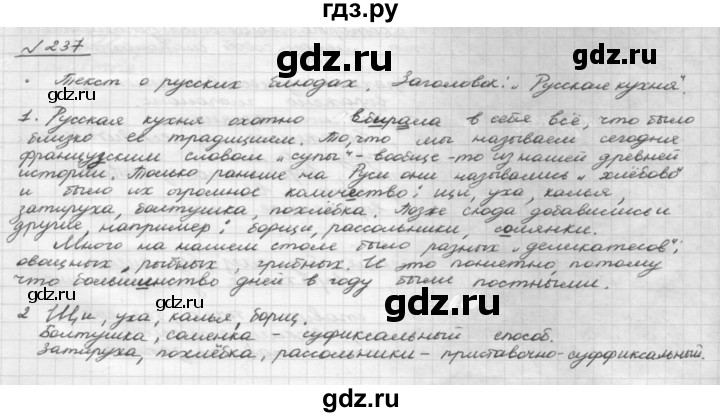 гдз.ру
№ 237
gdz.ru gdz.ru
• Текст о русских блюдах. Заголовок: „Русская кухня".
1. Русская кухня охотно вбирала в себя всё, что было
близко её традициям. То, что мы называем сегодня
французским словом „супы" - вообще-то из нашей древней
истории. Только раньше на Руси они назывались „хлёбово"
и было их огромное количество: щи, уха, калья,
затируха, болтушка, похлёбка. Позже сюда добавились и
другие, например: борщи, рассольники, солянки.
Много на нашем столе было разных „деликатесов":
овощных, рыбных, грибных. И это понятно, потому
что большинство дней в году были постными.
gdz.ru gdz.ru
2 Щи, уха, калья, борщ.
Болтушка, солянка - суфиксальный способ.
Затируха, похлёбка, рассольники - приставочно-суффиксальный.
gdz.ru gdz.ru